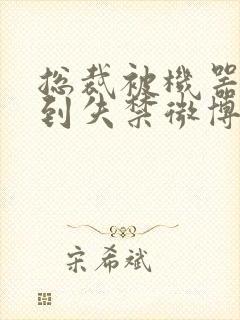 总裁被機器
到失禁微博
宋希斌